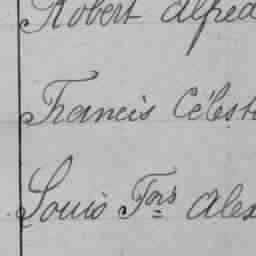 Robert Alfred
Francis Célest
Louis Fors Alex